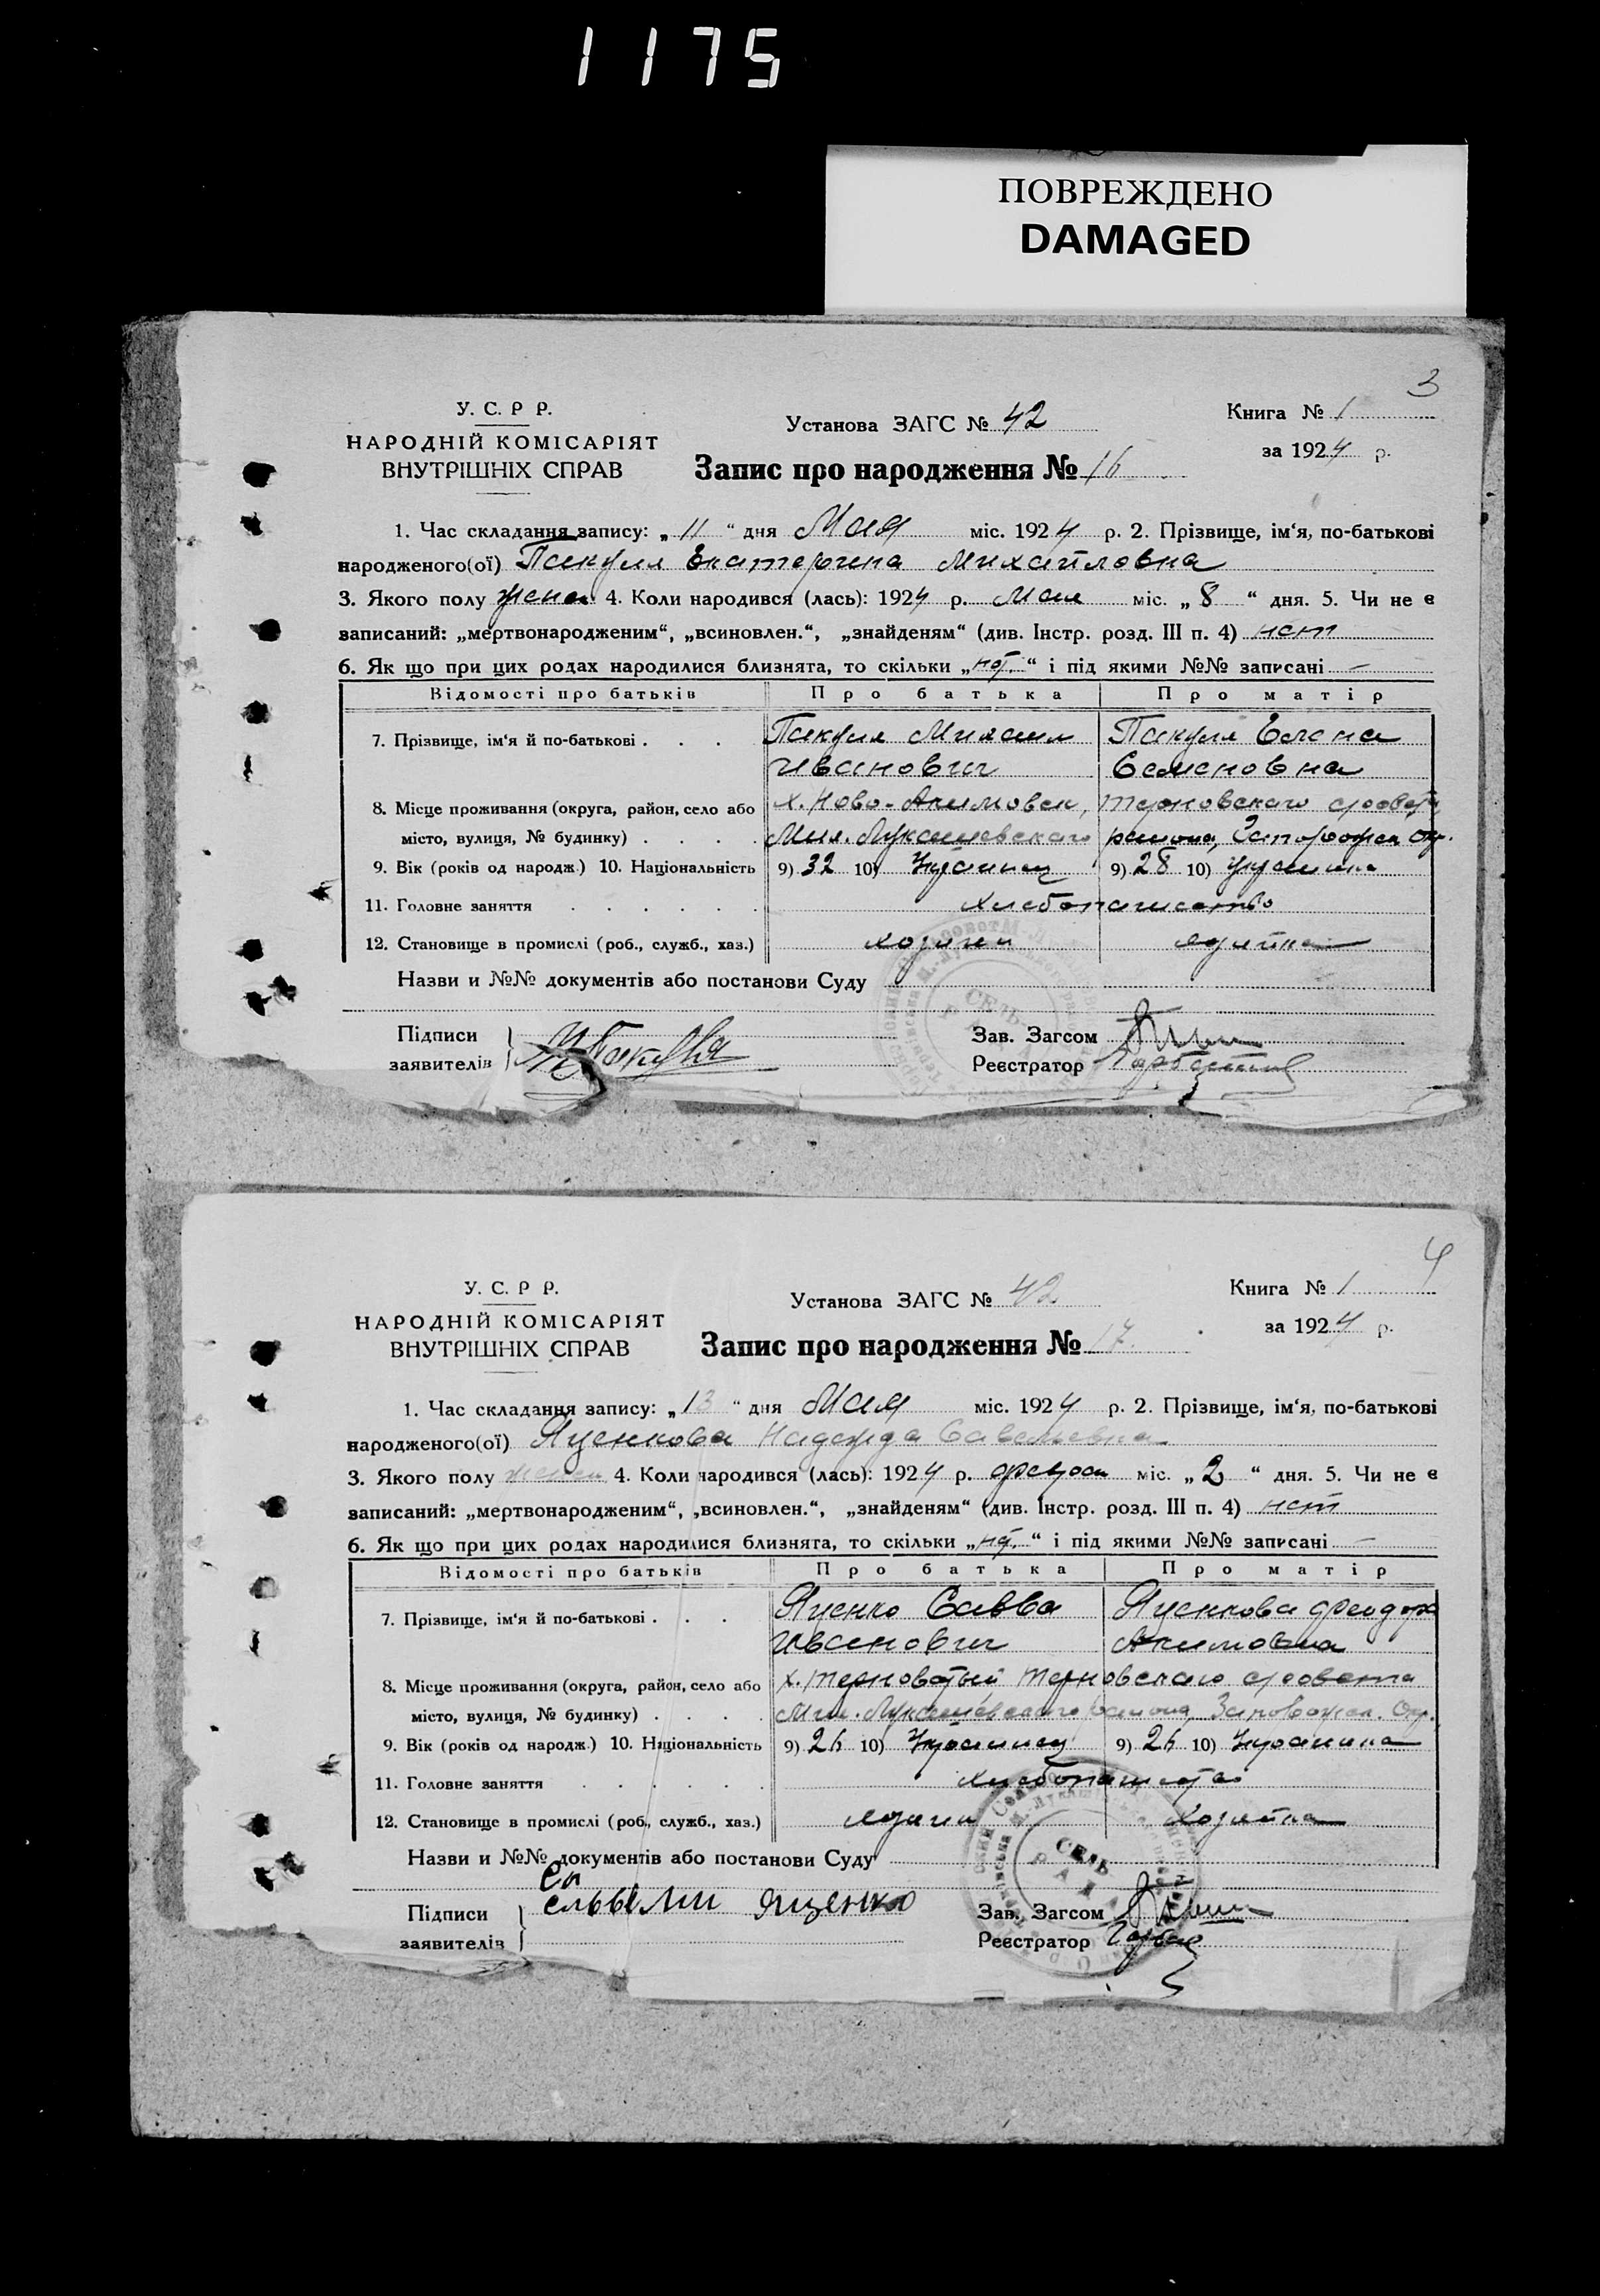 1175
ПОВРЕЖДЕНО
DAMAGED
3
У. С. Р Р.
НАРОДНІЙ КОМІСАРІЯТ
ВНУТРІШНІХ СПРАВ
Установа ЗАГС № 42
Книга № 1
за 1924 р.
Запис про народження № 16
1. Час складання запису: „ 11 “ дня Мая міс. 1924 р. 2. Прізвище, ім‘я, по-батькові
народженого(ої) Пакуля Екатерина Михайловна
3. Якого полу женск 4. Коли народився (лась): 1924 р. Мая міс. „ 8 “ дня. 5. Чи не є
записаний: „мертвонародженим“, „всиновлен.“, „знайденям“ (див. Інстр. розд. III п. 4) нет
6. Як що при цих родах народилися близнята, то скільки „ нет “ і під якими №№ записані –
Відомості про батьків Про батька Про матір
7. Прізвище, ім‘я й по-батькові . . . Пакуля Михаил Пакуля Елена
Иванович Семеновна
8. Місце проживання (округа, район, село або х. Ново-Акимовск, Терновского с/совета
місто, вулиця, № будинку) . . . . Мих. Лукашевского района, Запорожск Окр.
9. Вік (років од народж.) 10. Національність 9) 32 10) Украинец 9) 28 10) Украинка
11. Головне заняття . . . . . . Хлебопашество
12. Становище в промислі (роб., служб., хаз.) хозяин хозяйка
Назви и №№ документів або постанови Суду
Підписи
заявителів
Зав. Загсом
Реєстратор
СЕЛЬ
РАДА
4
У. С. Р Р.
НАРОДНІЙ КОМІСАРІЯТ
ВНУТРІШНІХ СПРАВ
Установа ЗАГС № 42
Книга № 1
за 1924 р.
Запис про народження № 17.
1. Час складання запису: „ 13 “ дня Мая міс. 1924 р. 2. Прізвище, ім‘я, по-батькові
народженого(ої) Яценкова Надежда Савельевна
3. Якого полу женск 4. Коли народився (лась): 1924 р. міс. „ 2 “ дня. 5. Чи не є
записаний: „мертвонародженим“, „всиновлен.“, „знайденям“ (див. Інстр. розд. III п. 4) нет
6. Як що при цих родах народилися близнята, то скільки „ нет “ і під якими №№ записані –
Відомості про батьків Про батька Про матір
7. Прізвище, ім‘я й по-батькові . . . Яценко Савва Яценкова Феодора
Иванович Акимовна
8. Місце проживання (округа, район, село або х. Терноватый Терновского с/совета
місто, вулиця, № будинку) . . . . Мих. Лукашевского района, Запорожск. Окр.
9. Вік (років од народж.) 10. Національність 9) 26 10) Украинец 9) 26 10) Украинка
11. Головне заняття . . . . . . Хлебопашество
12. Становище в промислі (роб., служб., хаз.) хозяин хозяйка
Назви и №№ документів або постанови Суду
Підписи Яценко
заявителів
Зав. Загсом
Реєстратор
СЕЛЬ
РАДА